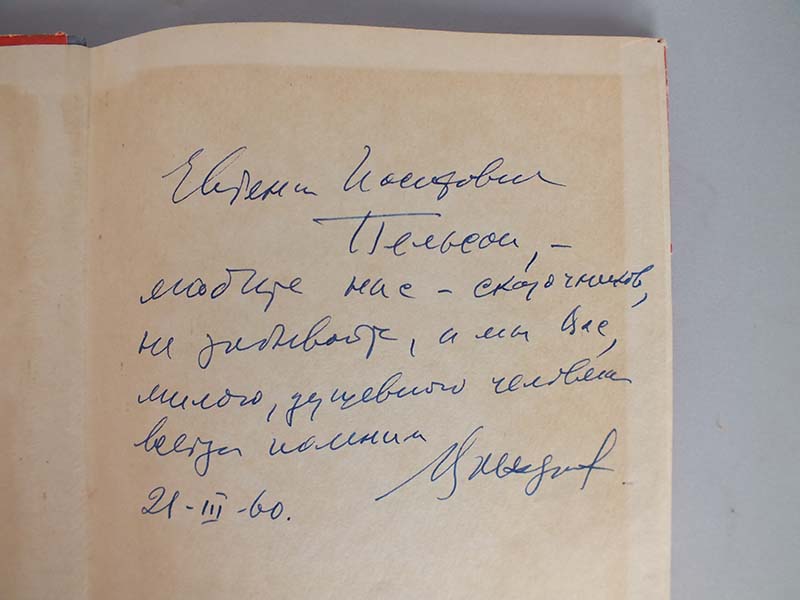 Евгении Иосифовне
Пельсон, –
любите нас – сказочников,
не забывайте, и мы Вас,
милого, душевного человека
всегда помним
21-III-60.